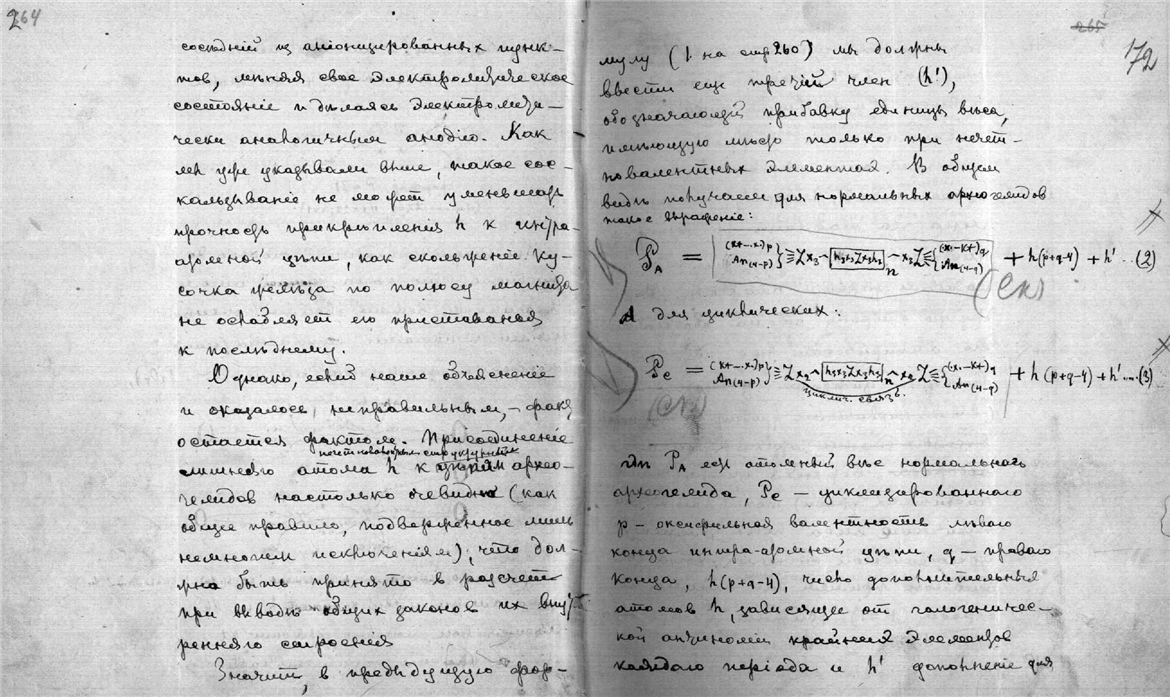 264
сосѣдній из анионизированных пунк-
тов, мѣняя свое электролитическое
состояніе и дѣлаясь электролити-
чески аналогичным анодію. Как
мы уже указывали выше, такое сос-
кальзываніе не может уменьшать
прочность прикрѣпленія h к интра-
атомной цѣпи, как скольженіе ку-
сочка желѣза по полюсу магнита
не ослабляет его приставанья
к послѣднему.
Однако, если наше объясненіе
и оказалось неправильным, – факт
остается фактом. Присоединеніе
лишняго атома h к архео-
гелидов настолько очевидно (как
общее правило, подверженное лишь
немногим исключеніям), что дол-
жно быть принято в разсчет
при выводѣ общих законов их внут-
ренняго строенія
Значит, в предыдущую фор-
265
172
мулу (1 на стр 260) мы должны
ввести еще третій член (h'),
обозначающій прибавку единицы вѣса,
имѣющую мѣсто только при нечет-
новалентных элементах. В общем
видѣ получаем для нормальных археогелидов
такое выраженіе:
P_A = + h(p+q-4) + h' ...(2)
А для циклических:
P_c = + h(p+q-4) + h' ....(3)
циклич. связь.
гдѣ P_A есть атомный вѣс нормальнаго
археогелида, P_c – циклизированнаго
p – оксифильная валентность лѣваго
конца интра-атомной цѣпи, q – праваго
конца, h(p+q-4), число дополнительных
атомов h, зависящее от галогеничес-
кой анциномии крайних элементов
каждаго періода и h' дополненіе для